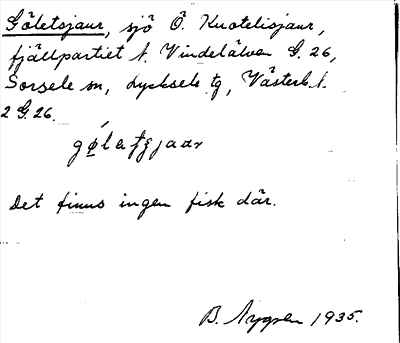 Göletsjaur, sjö Ö. Kuotelisjaur,
fjällpartiet t. Vindelälven G. 26,
Sorsele sn, Lycksele tg, Västerb. l.
2 G. 26.
Det finns ingen fisk där.
B. 1935.